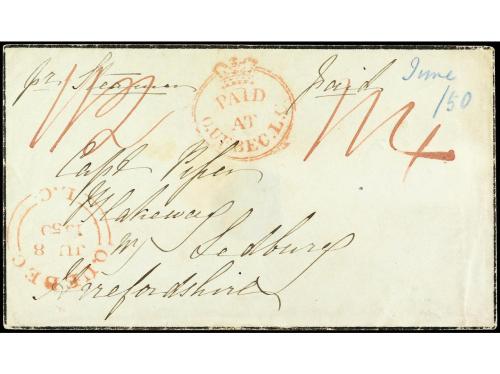 pr. Steamer
Paid
June
/50
PAID
AT
QUEBEC. L.C.
1/2
1/4
Capt Piper
nr Ledbury
Herefordshire
QUEBEC
L.C.
JU 8
1850